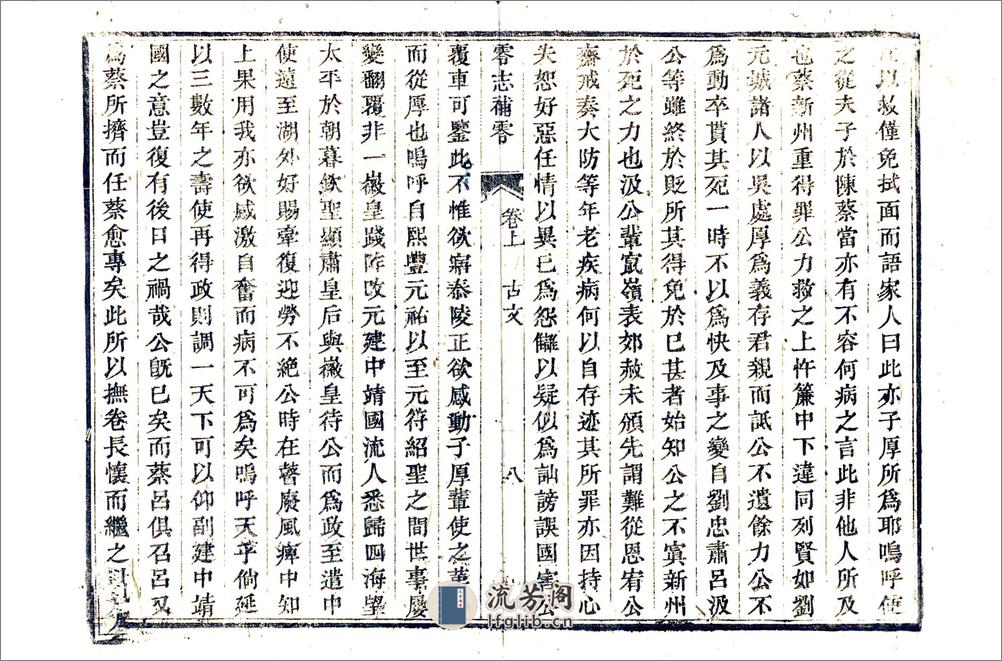 以救僅免拭面而語家人曰此亦子厚所爲耶嗚呼使
之從夫子於陳蔡當亦有不容何病之言此非他人所及
也蔡新州重得罪公力救之上忤簾中下違同列賢如劉
元城諸人以吳處厚爲義存君親而詆公不遺餘力公不
爲動卒貰其死一時不以爲快及事之變自劉忠肅呂汲
公等雖終於貶所其得免於已甚者始知公之不寘新州
於死之力也汲公輩竄嶺表郊赦未頒先謂難從恩宥公
齋戒奏大防等年老疾病何以自存迹其所罪亦因持心
失恕好惡任情以異已爲怨讎以疑似爲訕謗誤國害公
零志補零
卷上
古文
八
覆車可鑒此不惟欲寤泰陵正欲感動子厚輩使之
而從厚也嗚呼自熙豐元祐以至元符紹聖之間世事屢
變翻覆非一徽皇踐阼攺元建中靖國流人悉歸四海望
太平於朝暮欽聖顯肅皇后與徽皇待公而爲政至遣中
使遠至湖外好賜牽復迎勞不絕公時在瞽廢風痺中知
上果用我亦欲感激自奮而病不可爲矣嗚呼天乎倘延
以三數年之壽使再得政則調一天下可以仰副建中靖
國之意豈復有後日之禍哉公旣已矣而蔡呂俱召呂又
爲蔡所擠而任蔡愈專矣此所以撫卷長懷而繼之
流芳阁
lfglib.cn